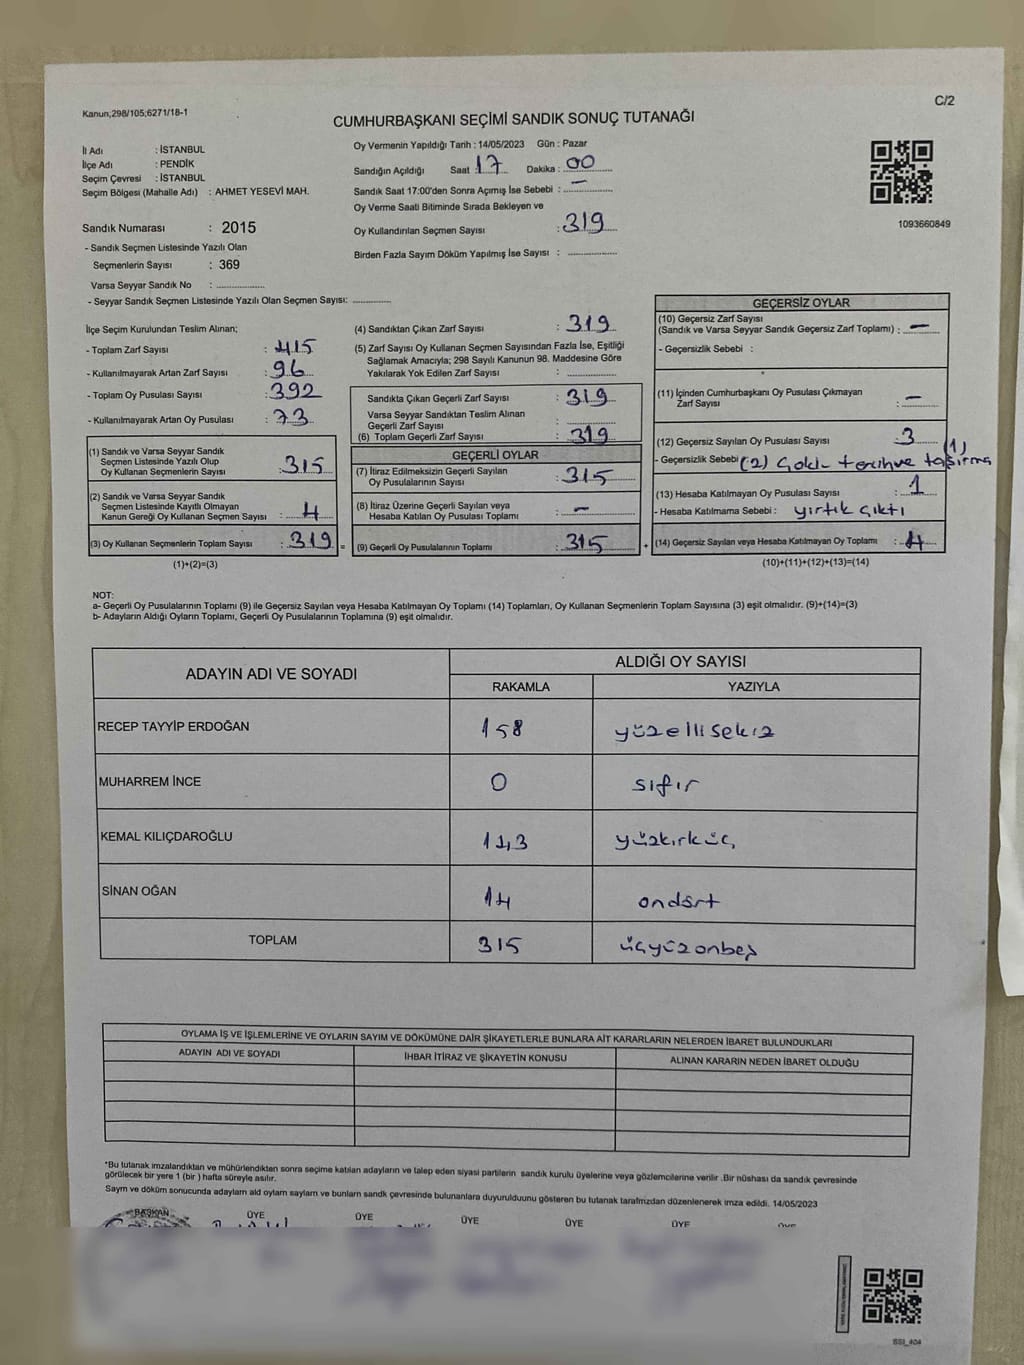 Kanun;298/105;6271/18-1
C/2
CUMHURBAŞKANI SEÇİMİ SANDIK SONUÇ TUTANAĞI
İl Adı : İSTANBUL
İlçe Adı : PENDİK
Seçim Çevresi : İSTANBUL
Seçim Bölgesi (Mahalle Adı) : AHMET YESEVİ MAH.
Sandık Numarası : 2015
- Sandık Seçmen Listesinde Yazılı Olan
Seçmenlerin Sayısı : 369
Varsa Seyyar Sandık No : ................
- Seyyar Sandık Seçmen Listesinde Yazılı Olan Seçmen Sayısı: .............
Oy Vermenin Yapıldığı Tarih : 14/05/2023 Gün : Pazar
Sandığın Açıldığı Saat 17 Dakika : 00
Sandık Saat 17:00'den Sonra Açımış İse Sebebi : –
Oy Verme Saati Bitiminde Sırada Bekleyen ve
Oy Kullandırılan Seçmen Sayısı : 319
Birden Fazla Sayım Döküm Yapılmış İse Sayısı : ................
1093660849
İlçe Seçim Kurulundan Teslim Alınan;
- Toplam Zarf Sayısı : 415
- Kullanılmayarak Artan Zarf Sayısı : 96
- Toplam Oy Pusulası Sayısı : 392
- Kullanılmayarak Artan Oy Pusulası : 73
(1) Sandık ve Varsa Seyyar Sandık
Seçmen Listesinde Yazılı Olup
Oy Kullanan Seçmenlerin Sayısı : 315
(2) Sandık ve Varsa Seyyar Sandık
Seçmen Listesinde Kayıtlı Olmayan
Kanun Gereği Oy Kullanan Seçmen Sayısı : 4
(3) Oy Kullanan Seçmenlerin Toplam Sayısı : 319 =
(1)+(2)=(3)
(4) Sandıktan Çıkan Zarf Sayısı : 319
(5) Zarf Sayısı Oy Kullanan Seçmen Sayısından Fazla İse, Eşitliği
Sağlamak Amacıyla; 298 Sayılı Kanunun 98. Maddesine Göre
Yakılarak Yok Edilen Zarf Sayısı : ................
Sandıkta Çıkan Geçerli Zarf Sayısı : 319
Varsa Seyyar Sandıktan Teslim Alınan
Geçerli Zarf Sayısı : ................
(6) Toplam Geçerli Zarf Sayısı : 319
GEÇERLİ OYLAR
(7) İtiraz Edilmeksizin Geçerli Sayılan
Oy Pusulalarının Sayısı : 315
(8) İtiraz Üzerine Geçerli Sayılan veya
Hesaba Katılan Oy Pusulası Toplamı : –
(9) Geçerli Oy Pusulalarının Toplamı : 315 +
GEÇERSİZ OYLAR
(10) Geçersiz Zarf Sayısı
(Sandık ve Varsa Seyyar Sandık Geçersiz Zarf Toplamı) : –
- Geçersizlik Sebebi :
(11) İçinden Cumhurbaşkanı Oy Pusulası Çıkmayan
Zarf Sayısı : –
(12) Geçersiz Sayılan Oy Pusulası Sayısı : 3
- Geçersizlik Sebebi (2) Çoklu tercih ve taşırma (1)
(13) Hesaba Katılmayan Oy Pusulası Sayısı : 1
- Hesaba Katılmama Sebebi : yırtık çıktı
(14) Geçersiz Sayılan veya Hesaba Katılmayan Oy Toplamı : 4
(10)+(11)+(12)+(13)=(14)
NOT:
a- Geçerli Oy Pusulalarının Toplamı (9) ile Geçersiz Sayılan veya Hesaba Katılmayan Oy Toplamı (14) Toplamları, Oy Kullanan Seçmenlerin Toplam Sayısına (3) eşit olmalıdır. (9)+(14)=(3)
b- Adayların Aldığı Oyların Toplamı, Geçerli Oy Pusulalarının Toplamına (9) eşit olmalıdır.
ADAYIN ADI VE SOYADI ALDIĞI OY SAYISI
RAKAMLA YAZIYLA
RECEP TAYYİP ERDOĞAN 158 yüzellisekiz
MUHARREM İNCE 0 sıfır
KEMAL KILIÇDAROĞLU 143 yüzkırküç
SİNAN OĞAN 14 ondört
TOPLAM 315 üçyüzonbeş
OYLAMA İŞ VE İŞLEMLERİNE VE OYLARIN SAYIM VE DÖKÜMÜNE DAİR ŞİKAYETLERLE BUNLARA AİT KARARLARIN NELERDEN İBARET BULUNDUKLARI
ADAYIN ADI VE SOYADI İHBAR İTİRAZ VE ŞİKAYETİN KONUSU ALINAN KARARIN NEDEN İBARET OLDUĞU
*Bu tutanak imzalandıktan ve mühürlendikten sonra seçime katılan adayların ve talep eden siyasi partilerin sandık kurulu üyelerine veya gözlemcilerine verilir .Bir nüshası da sandık çevresinde
görülecek bir yere 1 (bir ) hafta süreyle asılır.
Sayım ve döküm sonucunda adayların ald oyların sayların ve bunların sandk çevresinde bulunanlara duyurulduunu gösteren bu tutanak tarafmzdan düzenlenerek imza edildi. 14/05/2023
BAŞKAN ÜYE ÜYE ÜYE ÜYE ÜYE ÜYE
SSI_404